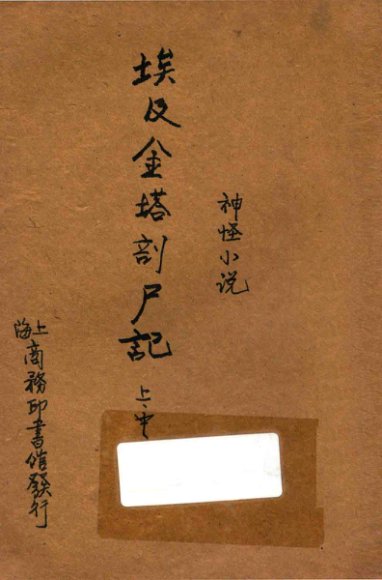 神怪小说
埃及金塔剖尸記
上、中
上海商務印書館發行